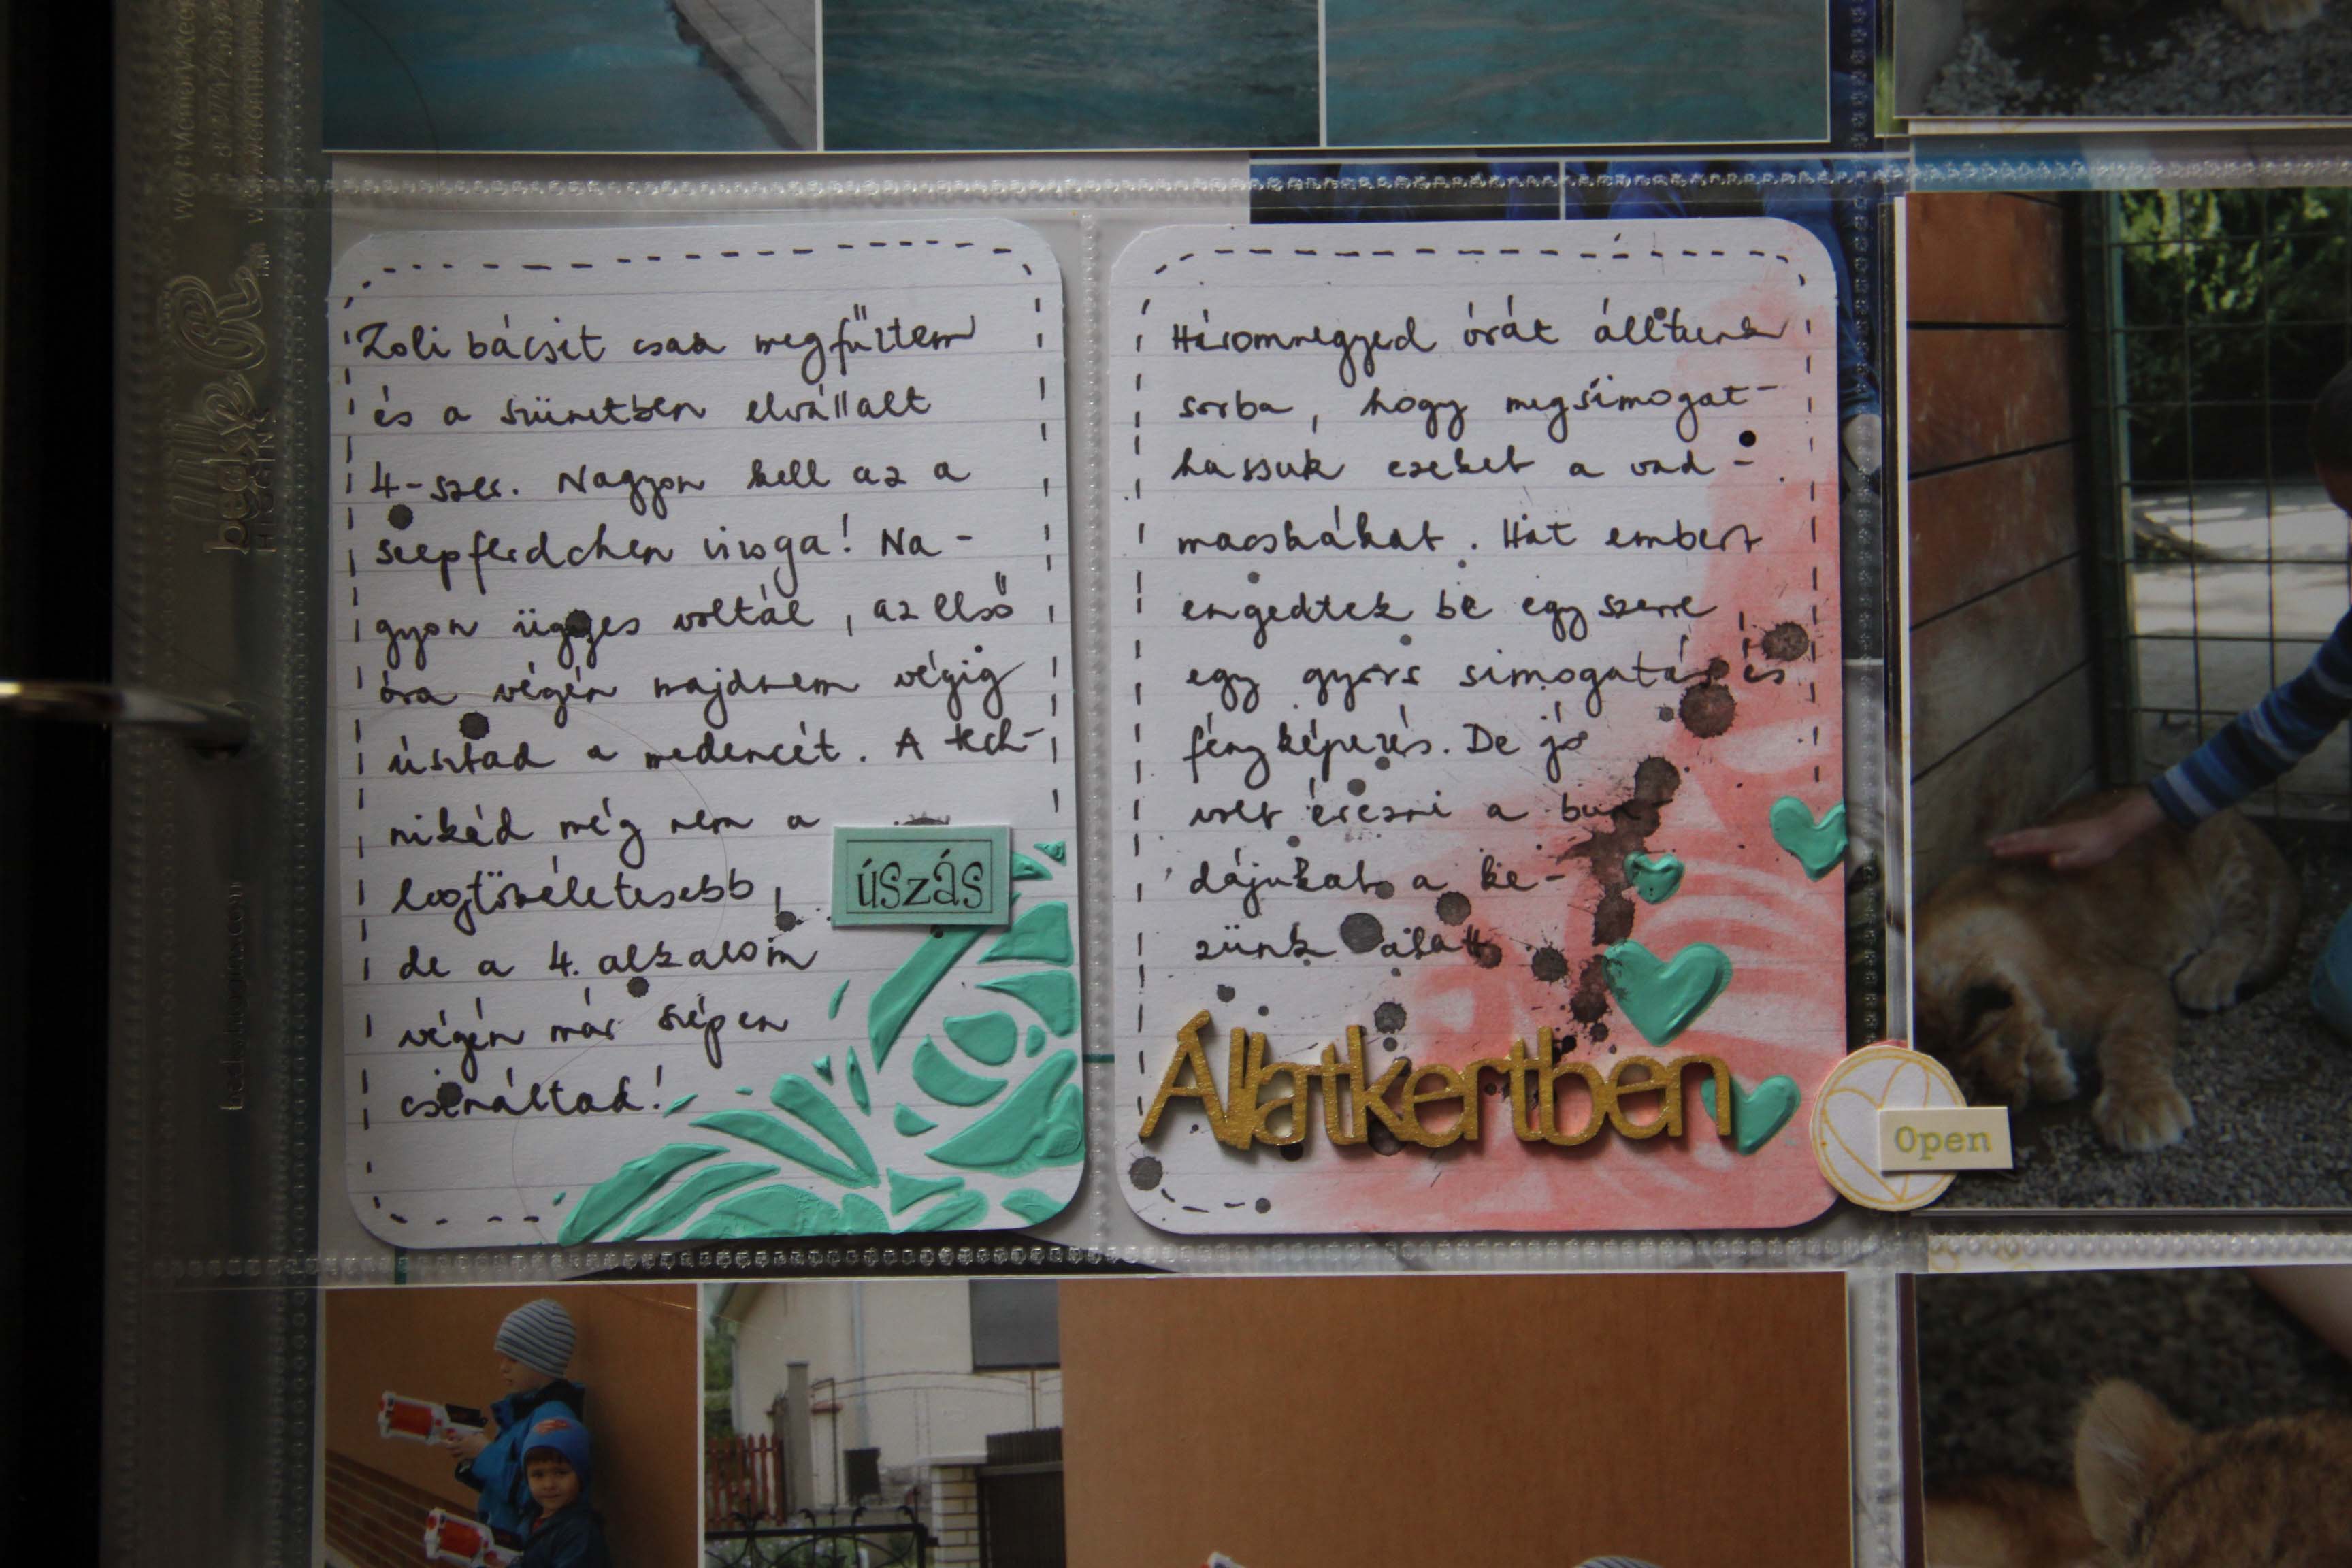 Zoli bácsit csak megfűztem
és a szünetben elvállalt
4-szer. Nagyon kell az a
seepferdchen vizsga! Na-
gyon ügyes voltál, az első
óra végén majdnem végig
úsztad a medencét. A tech-
nikád még nem a
legtökéletesebb,
de a 4. alkalom
végén már szépen
csináltad!
úszás
Háromnegyed órát álltunk
sorba, hogy megsimogat-
hassuk ezeket a vad-
macskákat. Hat embert
engedtek be egyszerre,
egy gyors simogatás és
fényképezés. De jó
volt érezni a bun-
dájukat a ke-
zünk alatt
Állatkertben
Open
becky
HIGGINS